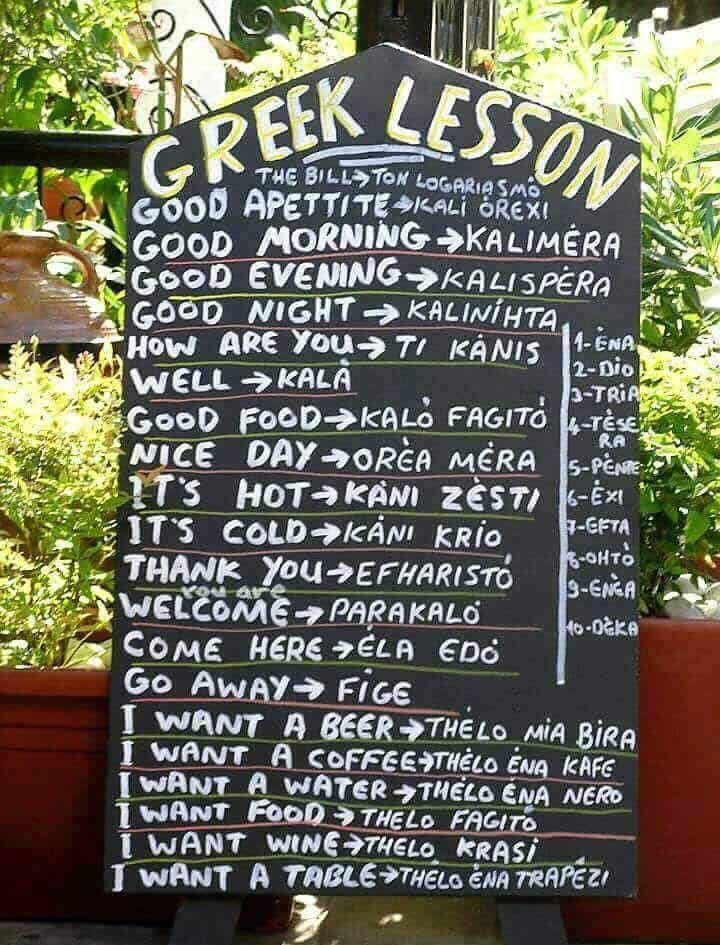 GREEK LESSON
THE BILL→TON LOGARIASMÔ
GOOD APETTITE→KALÍ ÒREXI
GOOD MORNING→KALIMÈRA
GOOD EVENING→KALISPÈRA
GOOD NIGHT→KALINÍHTA
HOW ARE YOU→TI KÀNIS
WELL→KALÀ
GOOD FOOD→KALÒ FAGITÓ
NICE DAY→ORÈA MÈRA
IT'S HOT→KÀNI ZÈSTI
IT'S COLD→KÀNI KRIO
THANK YOU→EFHARISTÓ
you are
WELCOME→PARAKALÓ
COME HERE→ÉLA EDÓ
GO AWAY→FÍGE
I WANT A BEER→THÉLO MIA BIRA
I WANT A COFFEE→THÈLO ÉNA KAFE
I WANT A WATER→THÈLO ÉNA NERO
I WANT FOOD→THELO FAGITÓ
I WANT WINE→THELO KRASÍ
I WANT A TABLE→THÉLO ÉNA TRAPÉZI
1-ÈNA
2-DÌO
3-TRIA
4-TÈSE
RA
5-PÈNTE
6-ÉXI
7-EFTA
8-OHTÒ
9-ENÈA
10-DÈKA